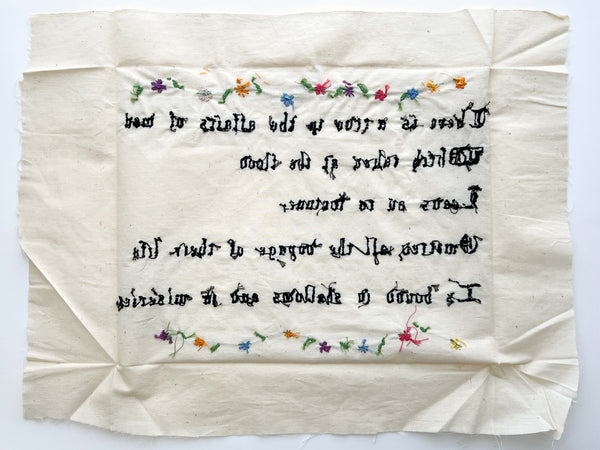 There is a tide in the affairs of men
Which taken at the flood
Leads on to fortune
Omitted, all the voyage of their life
Is bound in shallows and in miseries